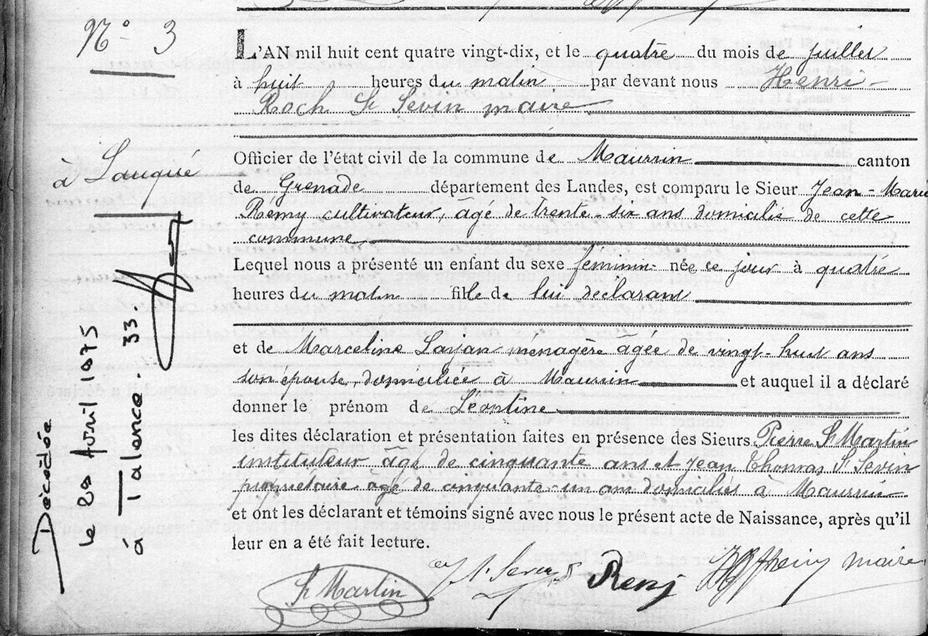 N° 3
à Lauqué
Décédée
le 20 Avril 1975
à Talence. 33.
L'AN mil huit cent quatre vingt-dix, et le quatre du mois de juillet
à huit heures du matin par devant nous Henri-
Roch St Sevin maire
Officier de l'état civil de la commune de Maurrin canton
de Grenade département des Landes, est comparu le Sieur Jean-Marie
Rémy cultivateur, âgé de trente-six ans domicilié de cette
commune
Lequel nous a présenté un enfant du sexe féminin née ce jour à quatre
heures du matin fille de lui déclarant
et de Marceline Layan ménagère âgée de vingt-huit ans
son épouse, domiciliée à Maurrin et auquel il a déclaré
donner le prénom de Léontine
les dites déclaration et présentation faites en présence des Sieurs Pierre St Martin
instituteur âgé de cinquante ans et Jean Thomas St Sevin
propriétaire agé de cinquante-un ans domiciliés à Maurrin
et ont les déclarant et témoins signé avec nous le présent acte de Naissance, après qu'il
leur en a été fait lecture.
St Martin maire